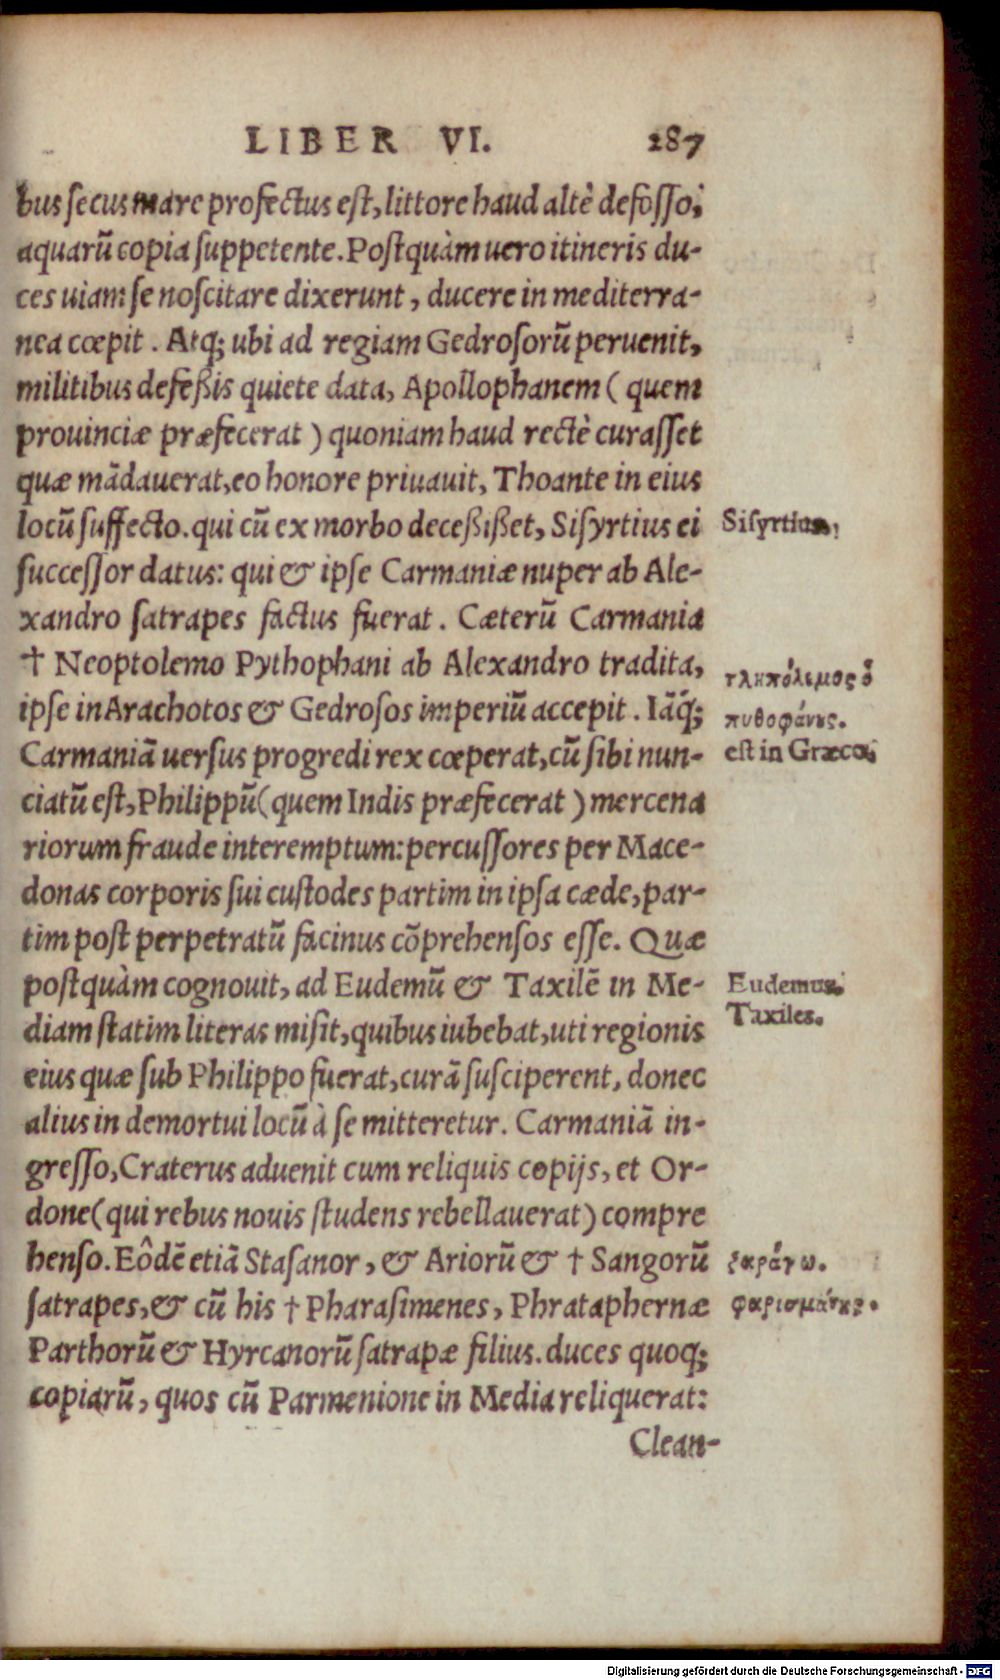 LIBER VI. 287
bus secus mare profectus est, littore haud altè defosso,
aquarũ copia suppetente. Postquàm uero itineris du-
ces uiam se noscitare dixerunt, ducere in mediterra-
nea cœpit. Atq; ubi ad regiam Gedrosorũ peruenit,
militibus defeßis quiete data, Apollophanem (quem
prouinciæ præfecerat) quoniam haud rectè curasset
quæ mãdauerat, eo honore priuauit, Thoante in eius
locũ suffecto. qui cũ ex morbo deceßißet, Sisyrtius ei
Sisyrtius,
successor datus: qui & ipse Carmaniæ nuper ab Ale-
xandro satrapes factus fuerat. Cæterũ Carmania
† Neoptolemo Pythophani ab Alexandro tradita,
τληπόλεμος ὁ
ipse in Arachotos & Gedrosos imperiũ accepit. Iãq́;
πυθοφάνης.
Carmaniã uersus progredi rex cœperat, cũ sibi nun-
est in Græco,
ciatũ est, Philippũ (quem Indis præfecerat) mercena
riorum fraude interemptum: percussores per Mace-
donas corporis sui custodes partim in ipsa cæde, par-
tim post perpetratũ facinus cõprehensos esse. Quæ
postquàm cognouit, ad Eudemũ & Taxilẽ in Me-
Eudemus.
diam statim literas misit, quibus iubebat, uti regionis
Taxiles.
eius quæ sub Philippo fuerat, curã susciperent, donec
alius in demortui locũ à se mitteretur. Carmaniã in-
gresso, Craterus aduenit cum reliquis copijs, et Or-
done (qui rebus nouis studens rebellauerat) compre
henso. Eôdẽ etiã Stasanor, & Ariorũ & † Sangorũ
ξαράγγω.
satrapes, & cũ his † Pharasimenes, Phrataphernæ
φαρισμάνης.
Parthorũ & Hyrcanorũ satrapæ filius. duces quoq;
copiarũ, quos cũ Parmenione in Media reliquerat:
Clean-
Digitalisierung gefördert durch die Deutsche Forschungsgemeinschaft - DFG